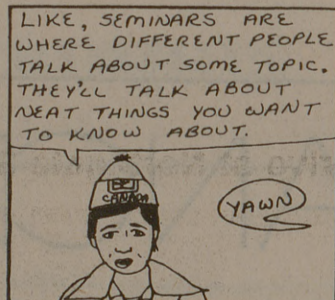 LIKE, SEMINARS ARE
WHERE DIFFERENT PEOPLE
TALK ABOUT SOME TOPIC.
THEY'LL TALK ABOUT
NEAT THINGS YOU WANT
TO KNOW ABOUT.
CANADA
YAWN